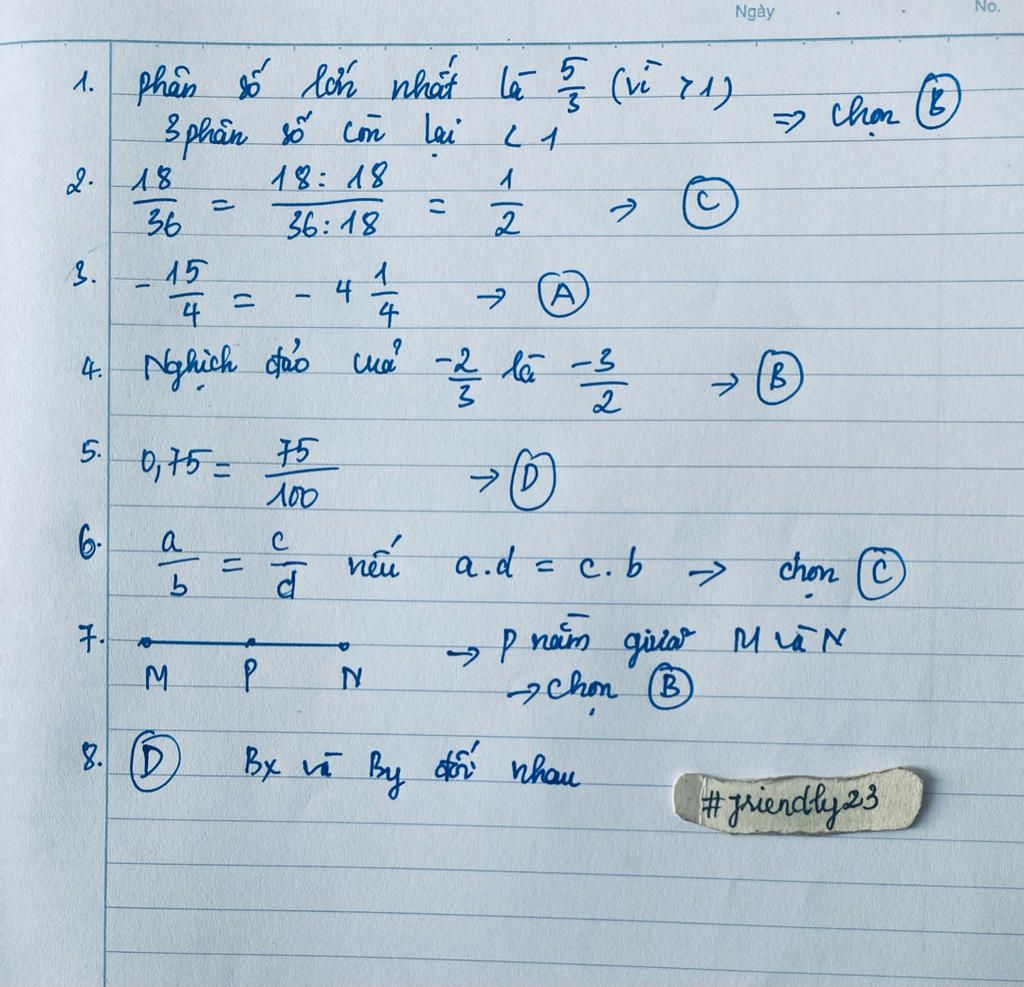 Ngày . . No.
1. phân số lớn nhất là 5/3 (vì >1)
3 phân số còn lại < 1 => chọn B
2. 18/36 = 18:18/36:18 = 1/2 → C
3. -15/4 = -4 1/4 → A
4. Nghịch đảo của -2/3 là -3/2 → B
5. 0,75 = 75/100 → D
6. a/b = c/d nếu a.d = c.b → chọn C
7. M P N → P nằm giữa M và N
→ chọn B
8. D Bx và By đối nhau
#friendly23